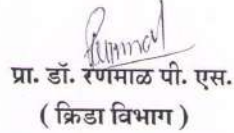 प्रा. डॉ. रणमाळ पी. एस.
( क्रिडा विभाग )